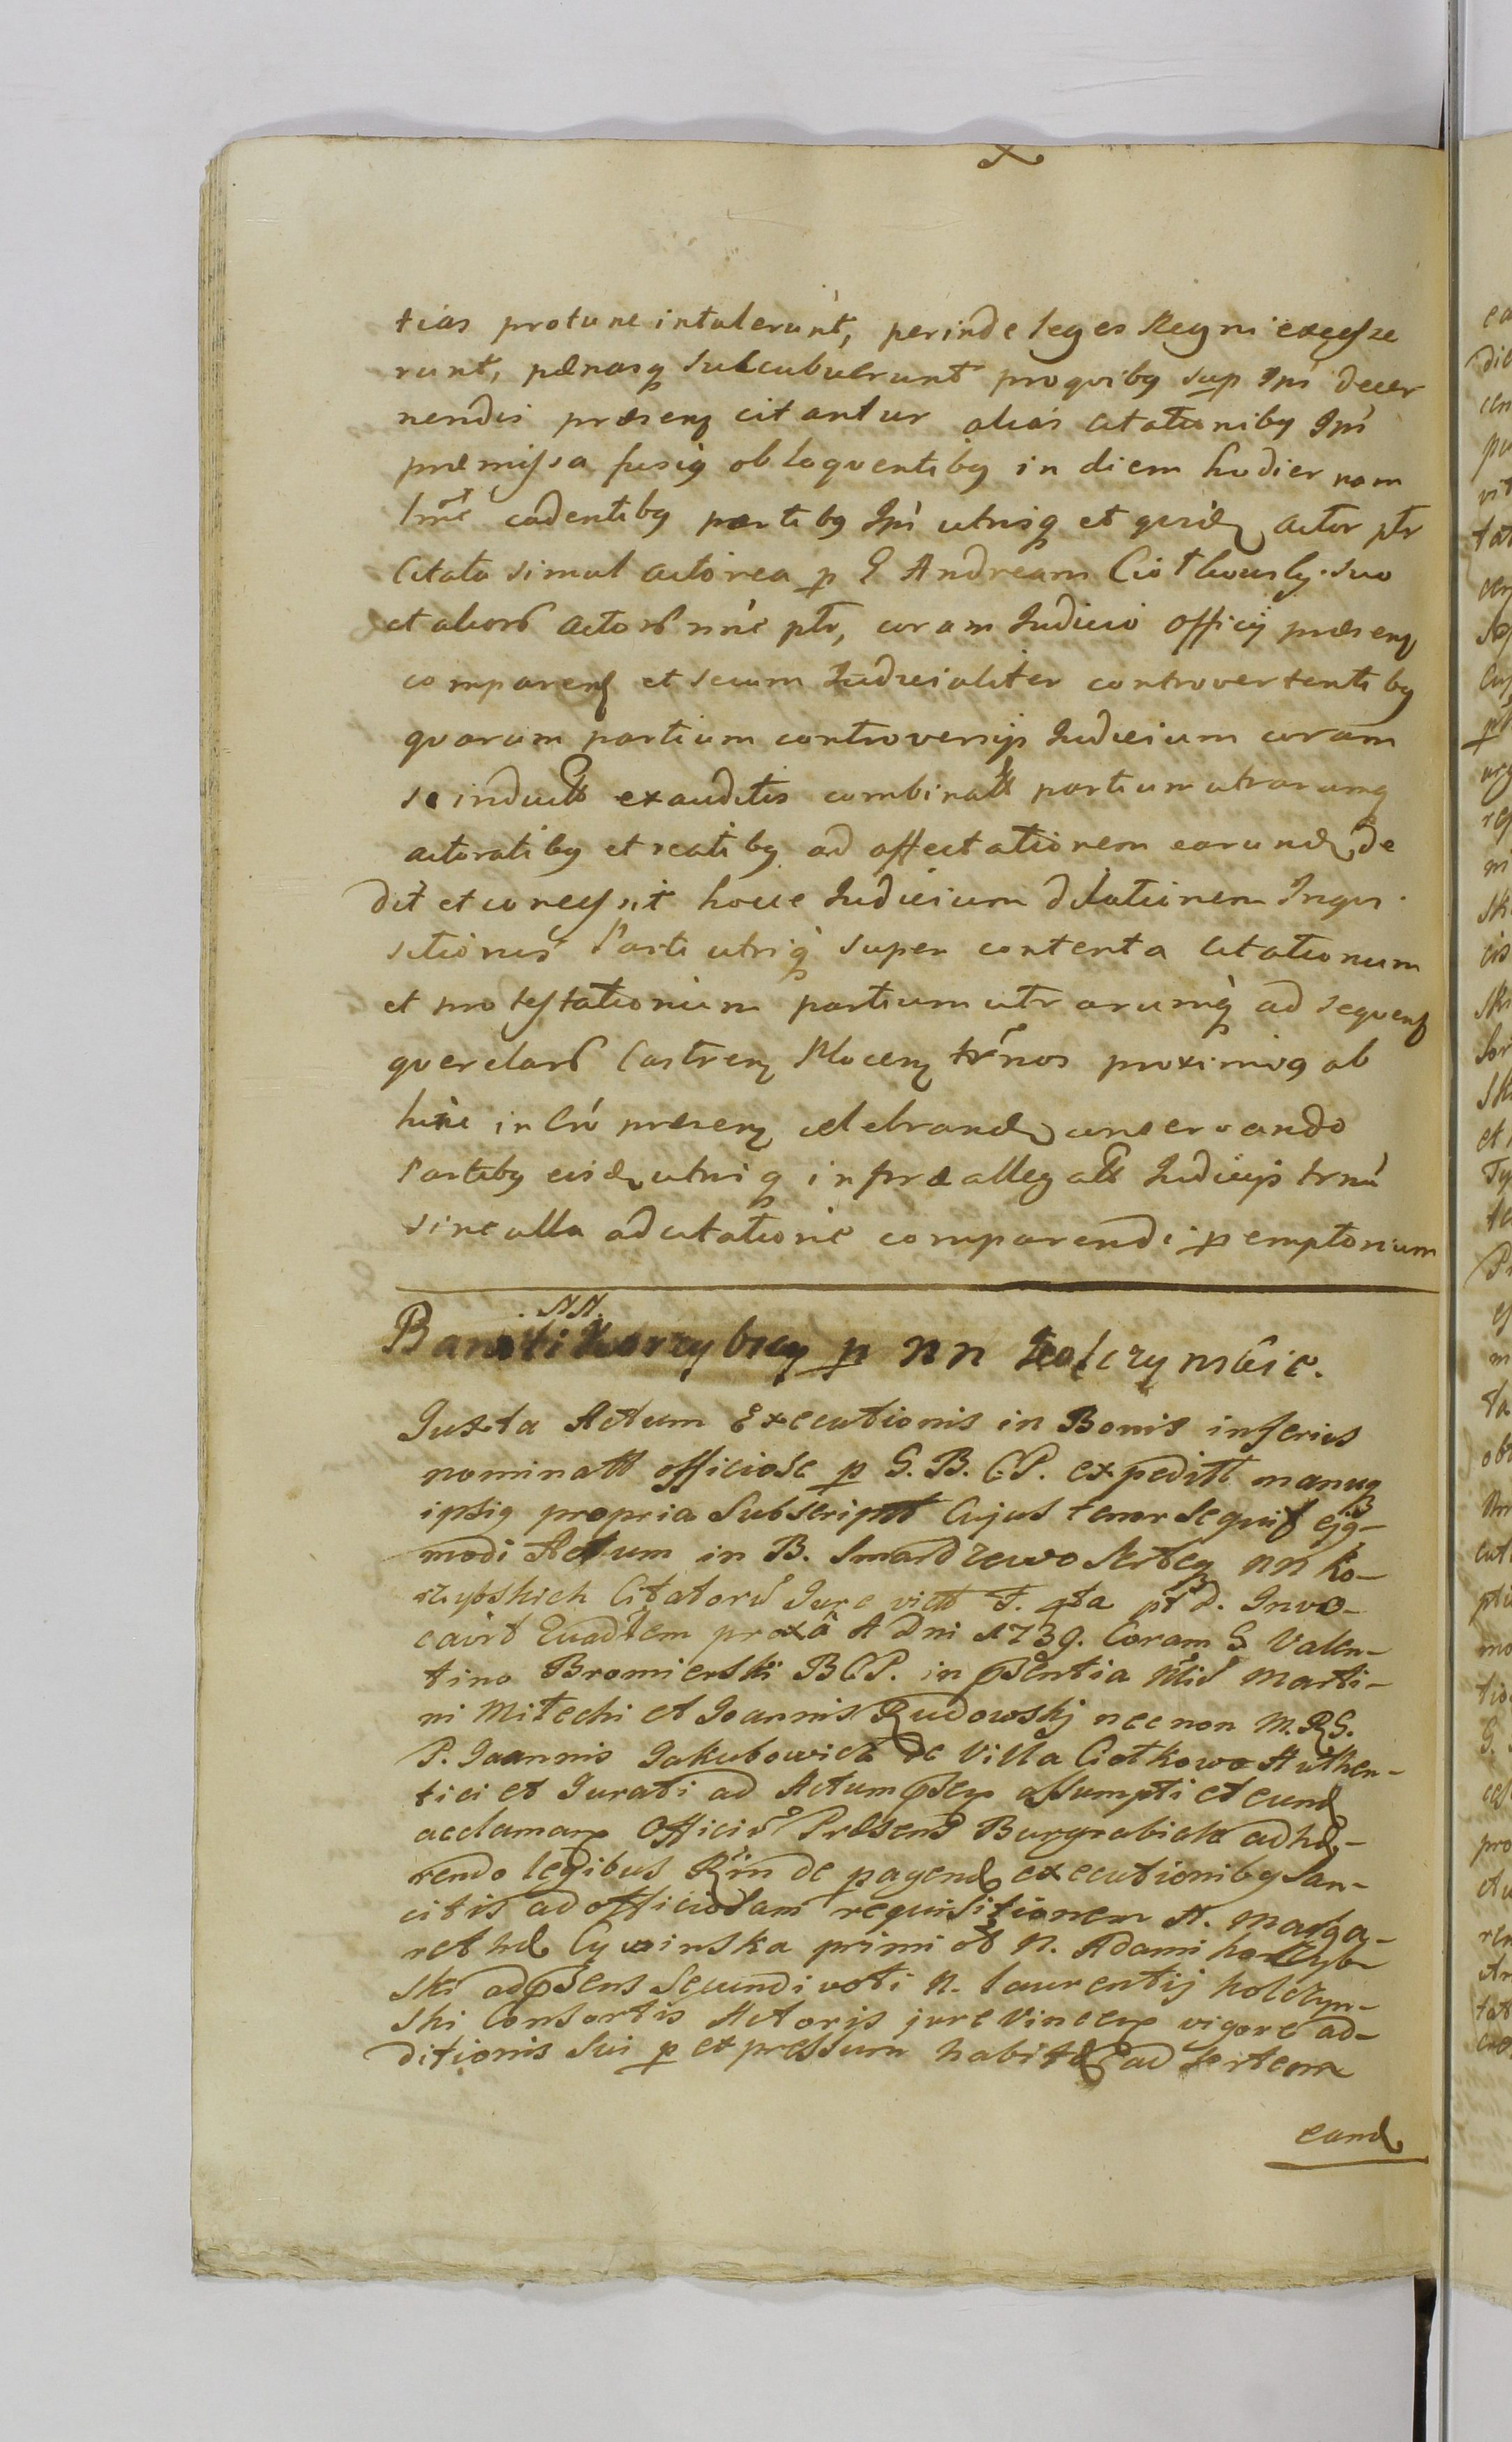 tias protunc intulerunt, perinde leges Regni excesse
runt, pænasq succubuerunt pro quibg sup Ipsi decer
nendis præsenq citantur alias Citationibg Ipsi
præmissa fusig obloquentibg in diem hodiernam
lmc cadentibg partibg Ipsi utrisq et quid actor ptr
Citata simul actorea p G Andream Ciotkowsky suo
et aliors actors nne ptr, coram Judicio officij præsenq
comparenq et secum Judicialiter controvertentibg
quarum partium controversijs Judicium coram
se inductts exauditis combinatts partium utrarumq
actoratibg et reatibg ad affectationem earund de
dit et concessit hocce Judicium dilationem Inqui
sitionis Parti utriq super contenta Citationum
et protestationum partium utrarumq ad sequenq
querelars Castrenq Plocenq trnos proximiog ab
hinc in Crô præsenq celebrand conservando
Partibg eisd utrisq in præallegatts Judicijs trnû
sine ulla adcitatione comparendi p emptorium
NN.
Banniti Korzybscy p nn Kolczynskie.
Juxta Actum Executionis in Bonis inferius
nominatt officiose p G. B. C.P. expeditt manuq
ipsig propria Subscriptt Cujus tenor sequit ejg-
modi Actum in B. Smardzewo Sorteq nn Ko-
rzybskich Citatorû Jure victt F. 4ta pt d. Invo-
cavit Euadtem proxâ A Dni 1739. Coram G Valen-
tino Bromierski B C P. in psentia Nliû Marti-
ni Mitechi et Joannis Rudowskj necnon M. R G.
P. Joannis Jakubowicz de Villa Ciotkowo Authen-
tici et Jurati ad Actum psenq assumpti et eund
acclamanq Officiû Præsens Burgrabiale adhæ-
rendo legibus Rin de pagend executionibg San-
citis ad officiosam requisitionem N. Marga-
rethæ Cywinska primi ot N. Adami Korzyb
ski ad psens Secundi voti N. Laurentij Kolczyn-
ski Consortis Actoris jure Vincenq vigore ad-
ditionis Sui p expressum habitæ ad Sortem
eand